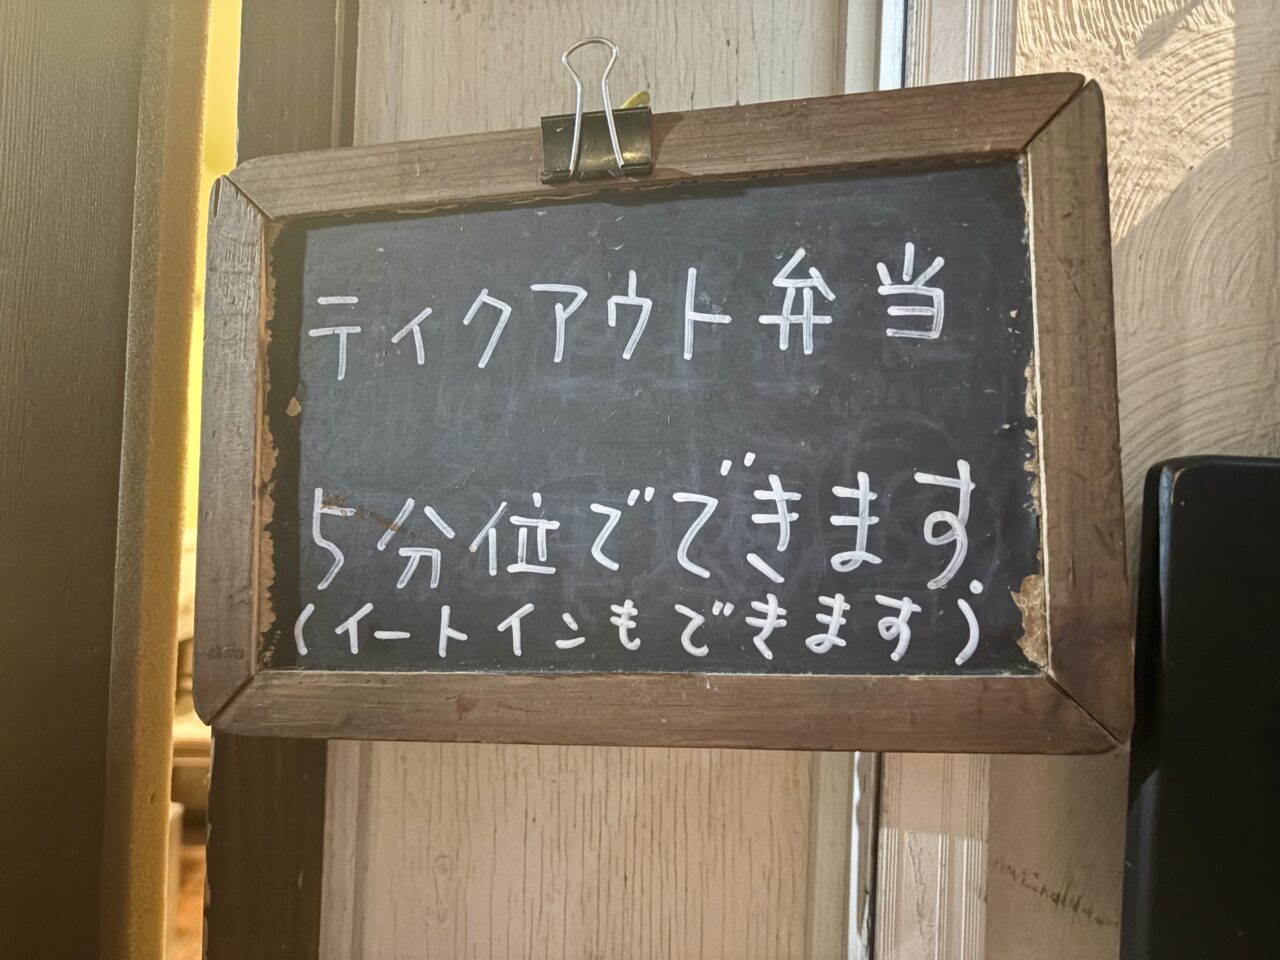 ティクアウト弁当
5分位でできます。
(イートインもできます)